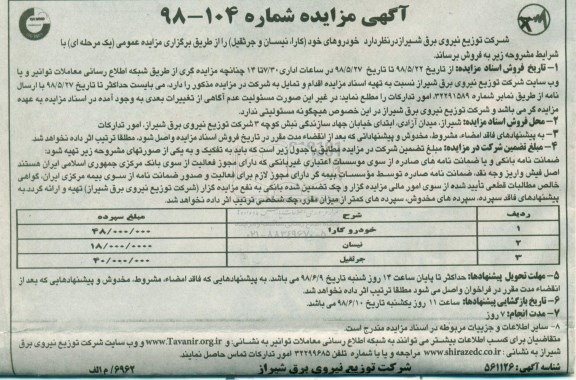 آگهی مزایده شماره ۱۰۴-۹۸
شرکت توزیع نیروی برق شیراز در نظر دارد خودروهای خود (کارا، نیسان و جرثقیل) را از طریق برگزاری مزایده عمومی (یک مرحله ای) با
شرایط مشروحه زیر به فروش برساند.
۱- تاریخ فروش اسناد مزایده: از تاریخ ۹۸/۵/۲۲ تا تاریخ ۹۸/۵/۲۷ در ساعات اداری ۷/۳۰ تا ۱۳ چنانچه مزایده گری از طریق شبکه اطلاع رسانی معاملات توانیر و یا
وب سایت شرکت توزیع نیروی برق شیراز نسبت به تهیه اسناد مزایده اقدام و تمایل به شرکت در مزایده مذکور را دارد، می بایست حداکثر تا تاریخ ۹۸/۵/۲۷ با ارسال
نامه از طریق نمابر شماره ۳۲۲۹۱۵۸۹ امور تدارکات را مطلع نماید؛ در غیر این صورت مسئولیت عدم آگاهی از تغییرات بعدی به وجود آمده در اسناد مزایده به عهده
مزایده گر می باشد و شرکت توزیع نیروی برق شیراز در این خصوص هیچگونه مسئولیتی ندارد.
۲- محل فروش اسناد مزایده: شیراز، میدان آزادی، ابتدای خیابان جهاد سازندگی نبش کوچه ۳ شرکت توزیع نیروی برق شیراز، امور تدارکات
۳- به پیشنهادهای فاقد امضاء، مشروط، مخدوش و پیشنهاداتی که بعد از انقضاء مدت مقرر در تاریخ فروش اسناد مزایده واصل شود، مطلقا ترتیب اثر داده نخواهد شد.
۴- مبلغ تضمین شرکت در مزایده: مبلغ تضمین شرکت در مزایده مطابق با جدول زیر است که باید به تفکیک و به یکی از صورتهای مشروح زیر تهیه شود:
ضمانت نامه بانکی و یا ضمانت نامه های صادره از سوی موسسات اعتباری غیربانکی که دارای مجوز فعالیت از سوی بانک مرکزی جمهوری اسلامی ایران هستند
اصل فیش واریز وجه نقد، ضمانت نامه صادره توسط مؤسسات بیمه گر دارای مجوز لازم برای فعالیت و صدور ضمانت نامه از سوی بیمه مرکزی ایران، گواهی
خالص مطالبات قطعی تأیید شده از سوی امور مالی مزایده گزار و چک تضمین شده بانکی به نفع مزایده گزار (شرکت توزیع نیروی برق شیراز) تهیه و ارائه گردد. به
پیشنهادهای فاقد سپرده، سپرده های مخدوش، سپرده های کمتر از میزان مقرر، چک شخصی ترتیب اثر داده نخواهد شد.
ردیف شرح مبلغ سپرده
۱ خودرو کارا ۴۸/۰۰۰/۰۰۰
۲ نیسان ۱۸/۰۰۰/۰۰۰
۳ جرثقیل ۴۰/۰۰۰/۰۰۰
۵- مهلت تحویل پیشنهادها: حداکثر تا پایان ساعت ۱۴ روز شنبه تاریخ ۹۸/۶/۹ می باشد. به پیشنهادهایی که فاقد امضاء، مشروط، مخدوش و پیشنهادهایی که بعد از
انقضاء مدت مقرر در فراخوان واصل می شود مطلقا ترتیب اثر داده نخواهد شد.
۶- تاریخ بازگشایی پیشنهادها: ساعت ۱۱ روز یکشنبه تاریخ ۹۸/۶/۱۰ می باشد.
۷- مدت انجام: ۷ روز
۸- سایر اطلاعات و جزییات مربوطه در اسناد مزایده مندرج است.
متقاضیان برای کسب اطلاعات بیشتر می توانند به شبکه اطلاع رسانی معاملات توانیر به نشانی www.Tavanir.org.ir و وب سایت شرکت توزیع نیروی برق
شیراز به نشانی: www.shirazedc.co.ir مراجعه و یا با شماره تلفن ۳۲۲۹۹۶۸۵ امور تدارکات تماس حاصل نمایند.
شناسه آگهی: ۵۶۱۱۲۶ شرکت توزیع نیروی برق شیراز ۶۹۶۲/م الف